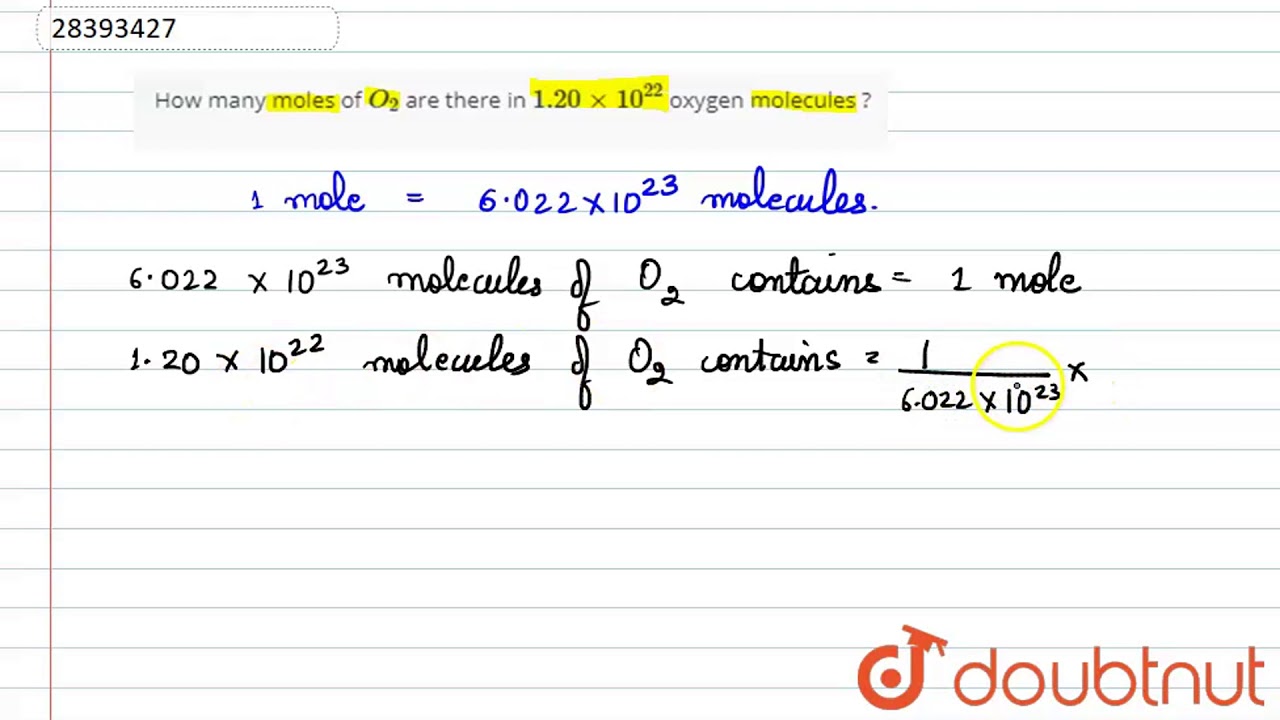 28393427
How many moles of O₂ are there in 1.20 × 10²² oxygen molecules ?
1 mole = 6.022 × 10²³ molecules.
6.022 × 10²³ molecules of O₂ contains = 1 mole
1.20 × 10²² molecules of O₂ contains = 1 / 6.022 × 10²³ ×
doubtnut